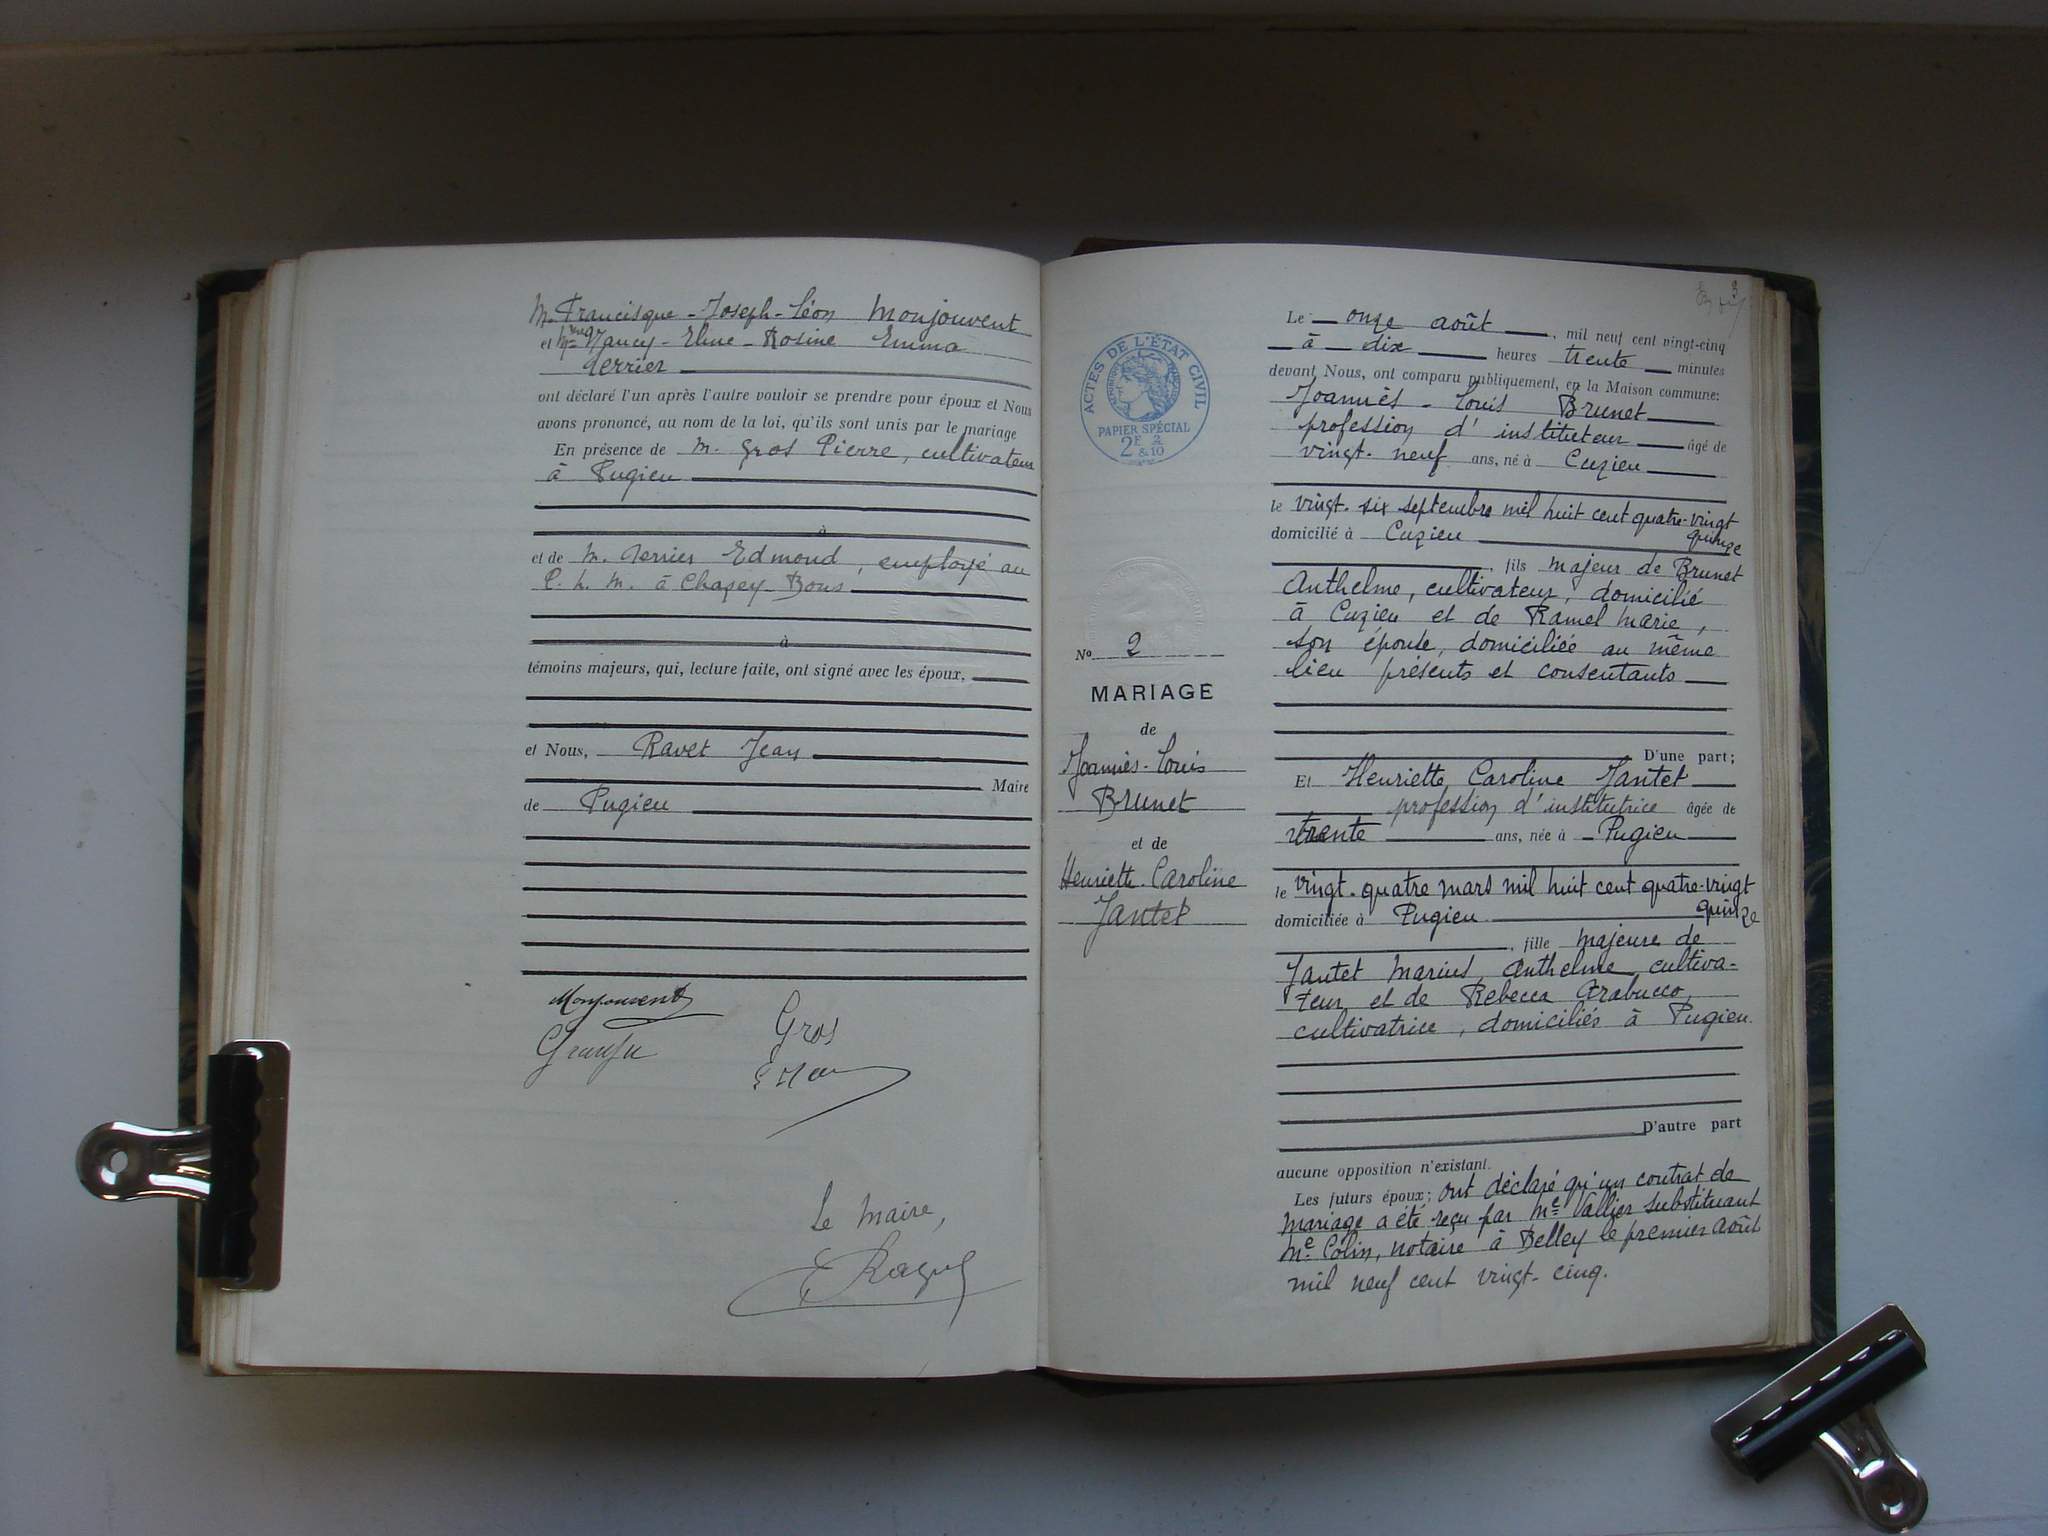 M. Francisque-Joseph-Léon Monjouvent
et Mme Nancy-Elme-Rosine Emma
Perrier
ont déclaré l'un après l'autre vouloir se prendre pour époux et Nous
avons prononcé, au nom de la loi, qu'ils sont unis par le mariage
En présence de M. Gros Pierre, cultivateur
à Pugieu
à
et de M. Perrier Edmond, employé au
P. L. M. à Chazey-Bons
à
témoins majeurs, qui, lecture faite, ont signé avec les époux,
et Nous, Ravet Jean
Maire
de Pugieu
Monjouvent
Gros
Le Maire,
ACTES DE L'ÉTAT CIVIL
PAPIER SPÉCIAL
2F 2
& 10
No 2
MARIAGE
de
Joannès-Louis
Brunet
et de
Henriette-Caroline
Jantet
Le onze août, mil neuf cent vingt-cinq
à dix heures trente minutes
devant Nous, ont comparu publiquement, en la Maison commune:
Joannès-Louis Brunet
profession d'instituteur âgé de
vingt-neuf ans, né à Cuzieu
le vingt-six septembre mil huit cent quatre-vingt
quinze
domicilié à Cuzieu
, fils majeur de Brunet
Anthelme, cultivateur, domicilié
à Cuzieu et de Ramel Marie,
son épouse, domiciliée au même
lieu présents et consentants
D'une part;
Et Henriette Caroline Jantet
profession d'institutrice âgée de
trente ans, née à Pugieu
le vingt-quatre mars mil huit cent quatre-vingt
quinze
domiciliée à Pugieu
, fille majeure de
Jantet Marius, Anthelme cultiva-
teur, et de Rebecca Arabucco,
cultivatrice, domiciliés à Pugieu.
D'autre part
aucune opposition n'existant.
Les futurs époux; ont déclaré qu'un contrat de
mariage a été reçu par Me Vallier substituant
Me Colin, notaire à Belley le premier août
mil neuf cent vingt-cinq.